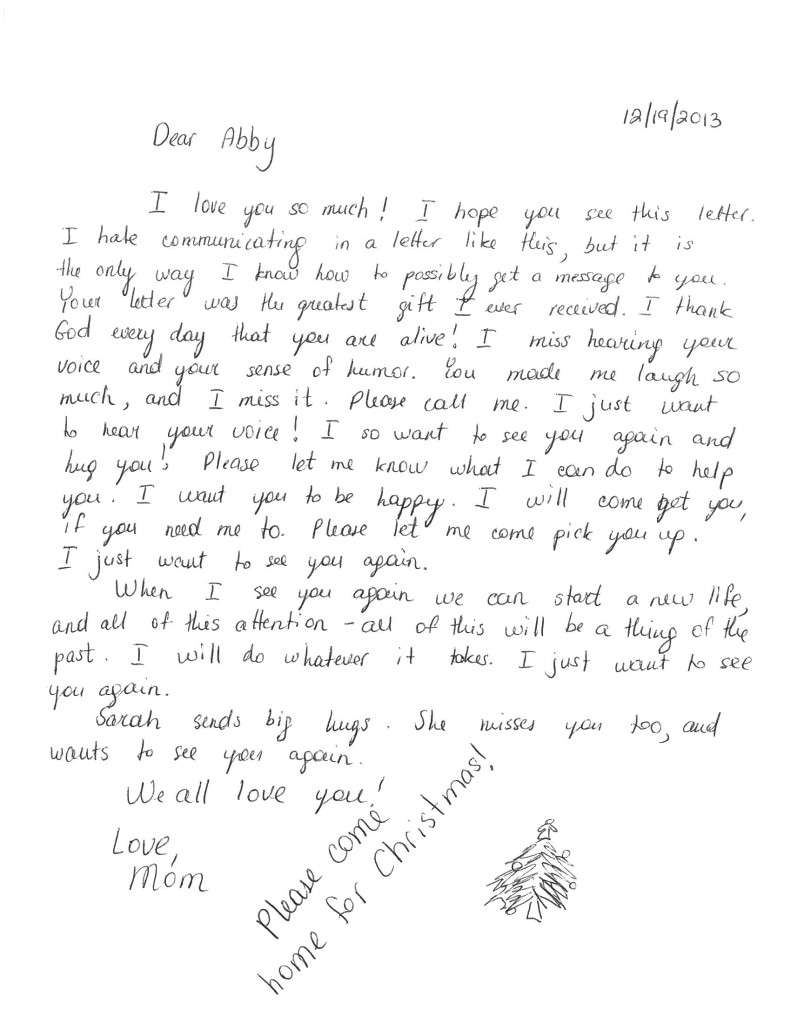 12/19/2013
Dear Abby
I love you so much! I hope you see this letter.
I hate communicating in a letter like this, but it is
the only way I know how to possibly get a message to you.
Your letter was the greatest gift I ever received. I thank
God every day that you are alive! I miss hearing your
voice and your sense of humor. You made me laugh so
much, and I miss it. Please call me. I just want
to hear your voice! I so want to see you again and
hug you! Please let me know what I can do to help
you. I want you to be happy. I will come get you,
if you need me to. Please let me come pick you up.
I just want to see you again.
When I see you again we can start a new life,
and all of this attention - all of this will be a thing of the
past. I will do whatever it takes. I just want to see
you again.
Sarah sends big hugs. She misses you too, and
wants to see you again.
We all love you!
Love,
Mom
Please come
home for Christmas!